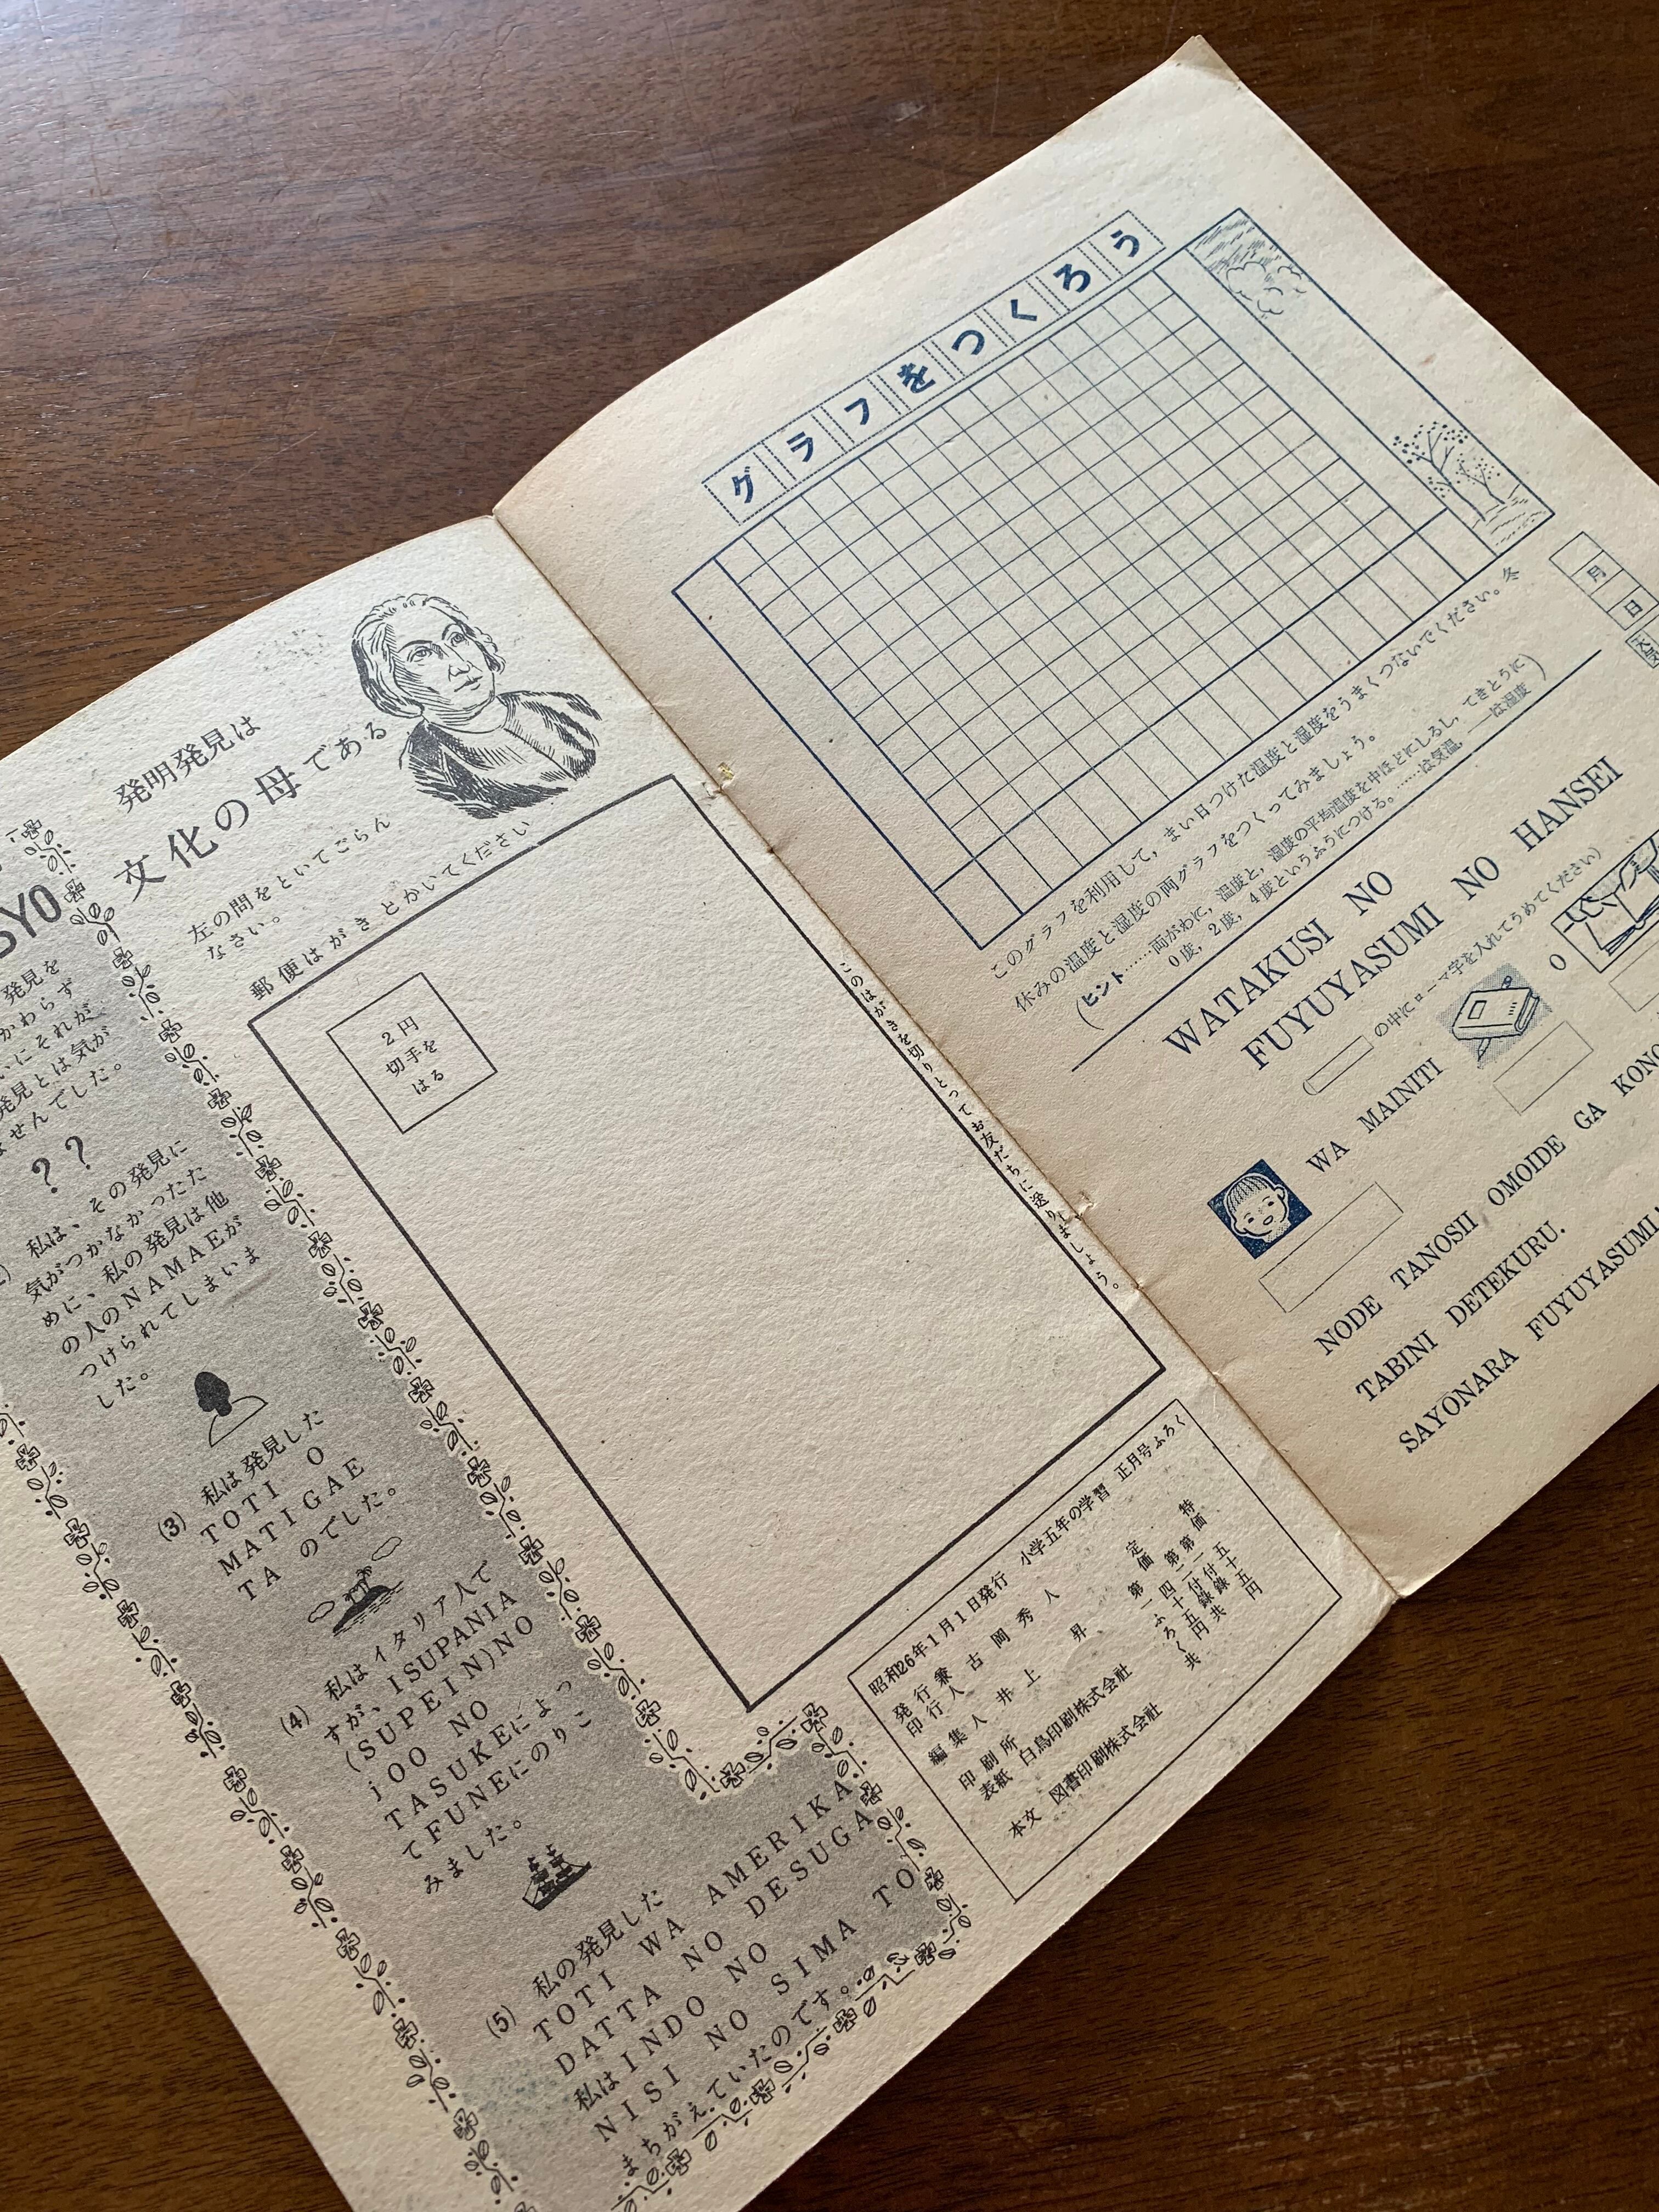 SYO
発見を
かわらず
いにそれが、
発見とは気が
ませんでした。
??
私は、その発見に
気がつかなかったた
めに、私の発見は他
の人のNAMAEが
つけられてしまいま
した。
(3) 私は発見した
TOTI O
MATIGAE
TA のでした。
(4) 私はイタリア人で
すが、ISUPANIA
(SUPEIN)NO
jOO NO
TASUKEによっ
てFUNEにのりこ
みました。
(5) 私の発見した
TOTI WA AMERIKA
DATTA NO DESUGA
私はINDO NO
NISI NO SIMA TO
まちがえていたのです。
発明発見は
文化の母である
左の問をといてごらん
なさい。
郵便はがきとかいてください
2円
切手を
はる
このはがきを切りとってお友だちに送りましょう。
昭和26年1月1日発行 小学五年の学習 正月号ふろく
発行兼
印行人 古岡秀人
編集人 井上昇
印刷所
表紙 白鳥印刷株式会社
本文 図書印刷株式会社
定価
特価
グラフをつくろう
月
日
天気
このグラフを利用して，まい日つけた温度と湿度をうまくつないでください。冬
休みの温度と湿度の両グラフをつくってみましょう。
(ヒント……両がわに，温度と，湿度の平均温度を中ほどにしるし，てきとうに
0度，2度，4度というふうにつける。……は気温，――は湿度)
WATAKUSI NO
FUYUYASUMI NO HANSEI
の中にローマ字を入れてうめてください)
WA MAINITI
O
NODE TANOSII OMOIDE GA KONO
TABINI DETEKURU.
SAYONARA FUYUYASUMI